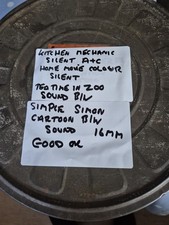 KITCHEN MECHANIC
SILENT A+C
HOME MOVIE COLOUR
SILENT
TEA TIME IN ZOO
SOUND B/W
SIMPLE SIMON
CARTOON B/W
SOUND 16MM
GOOD OK